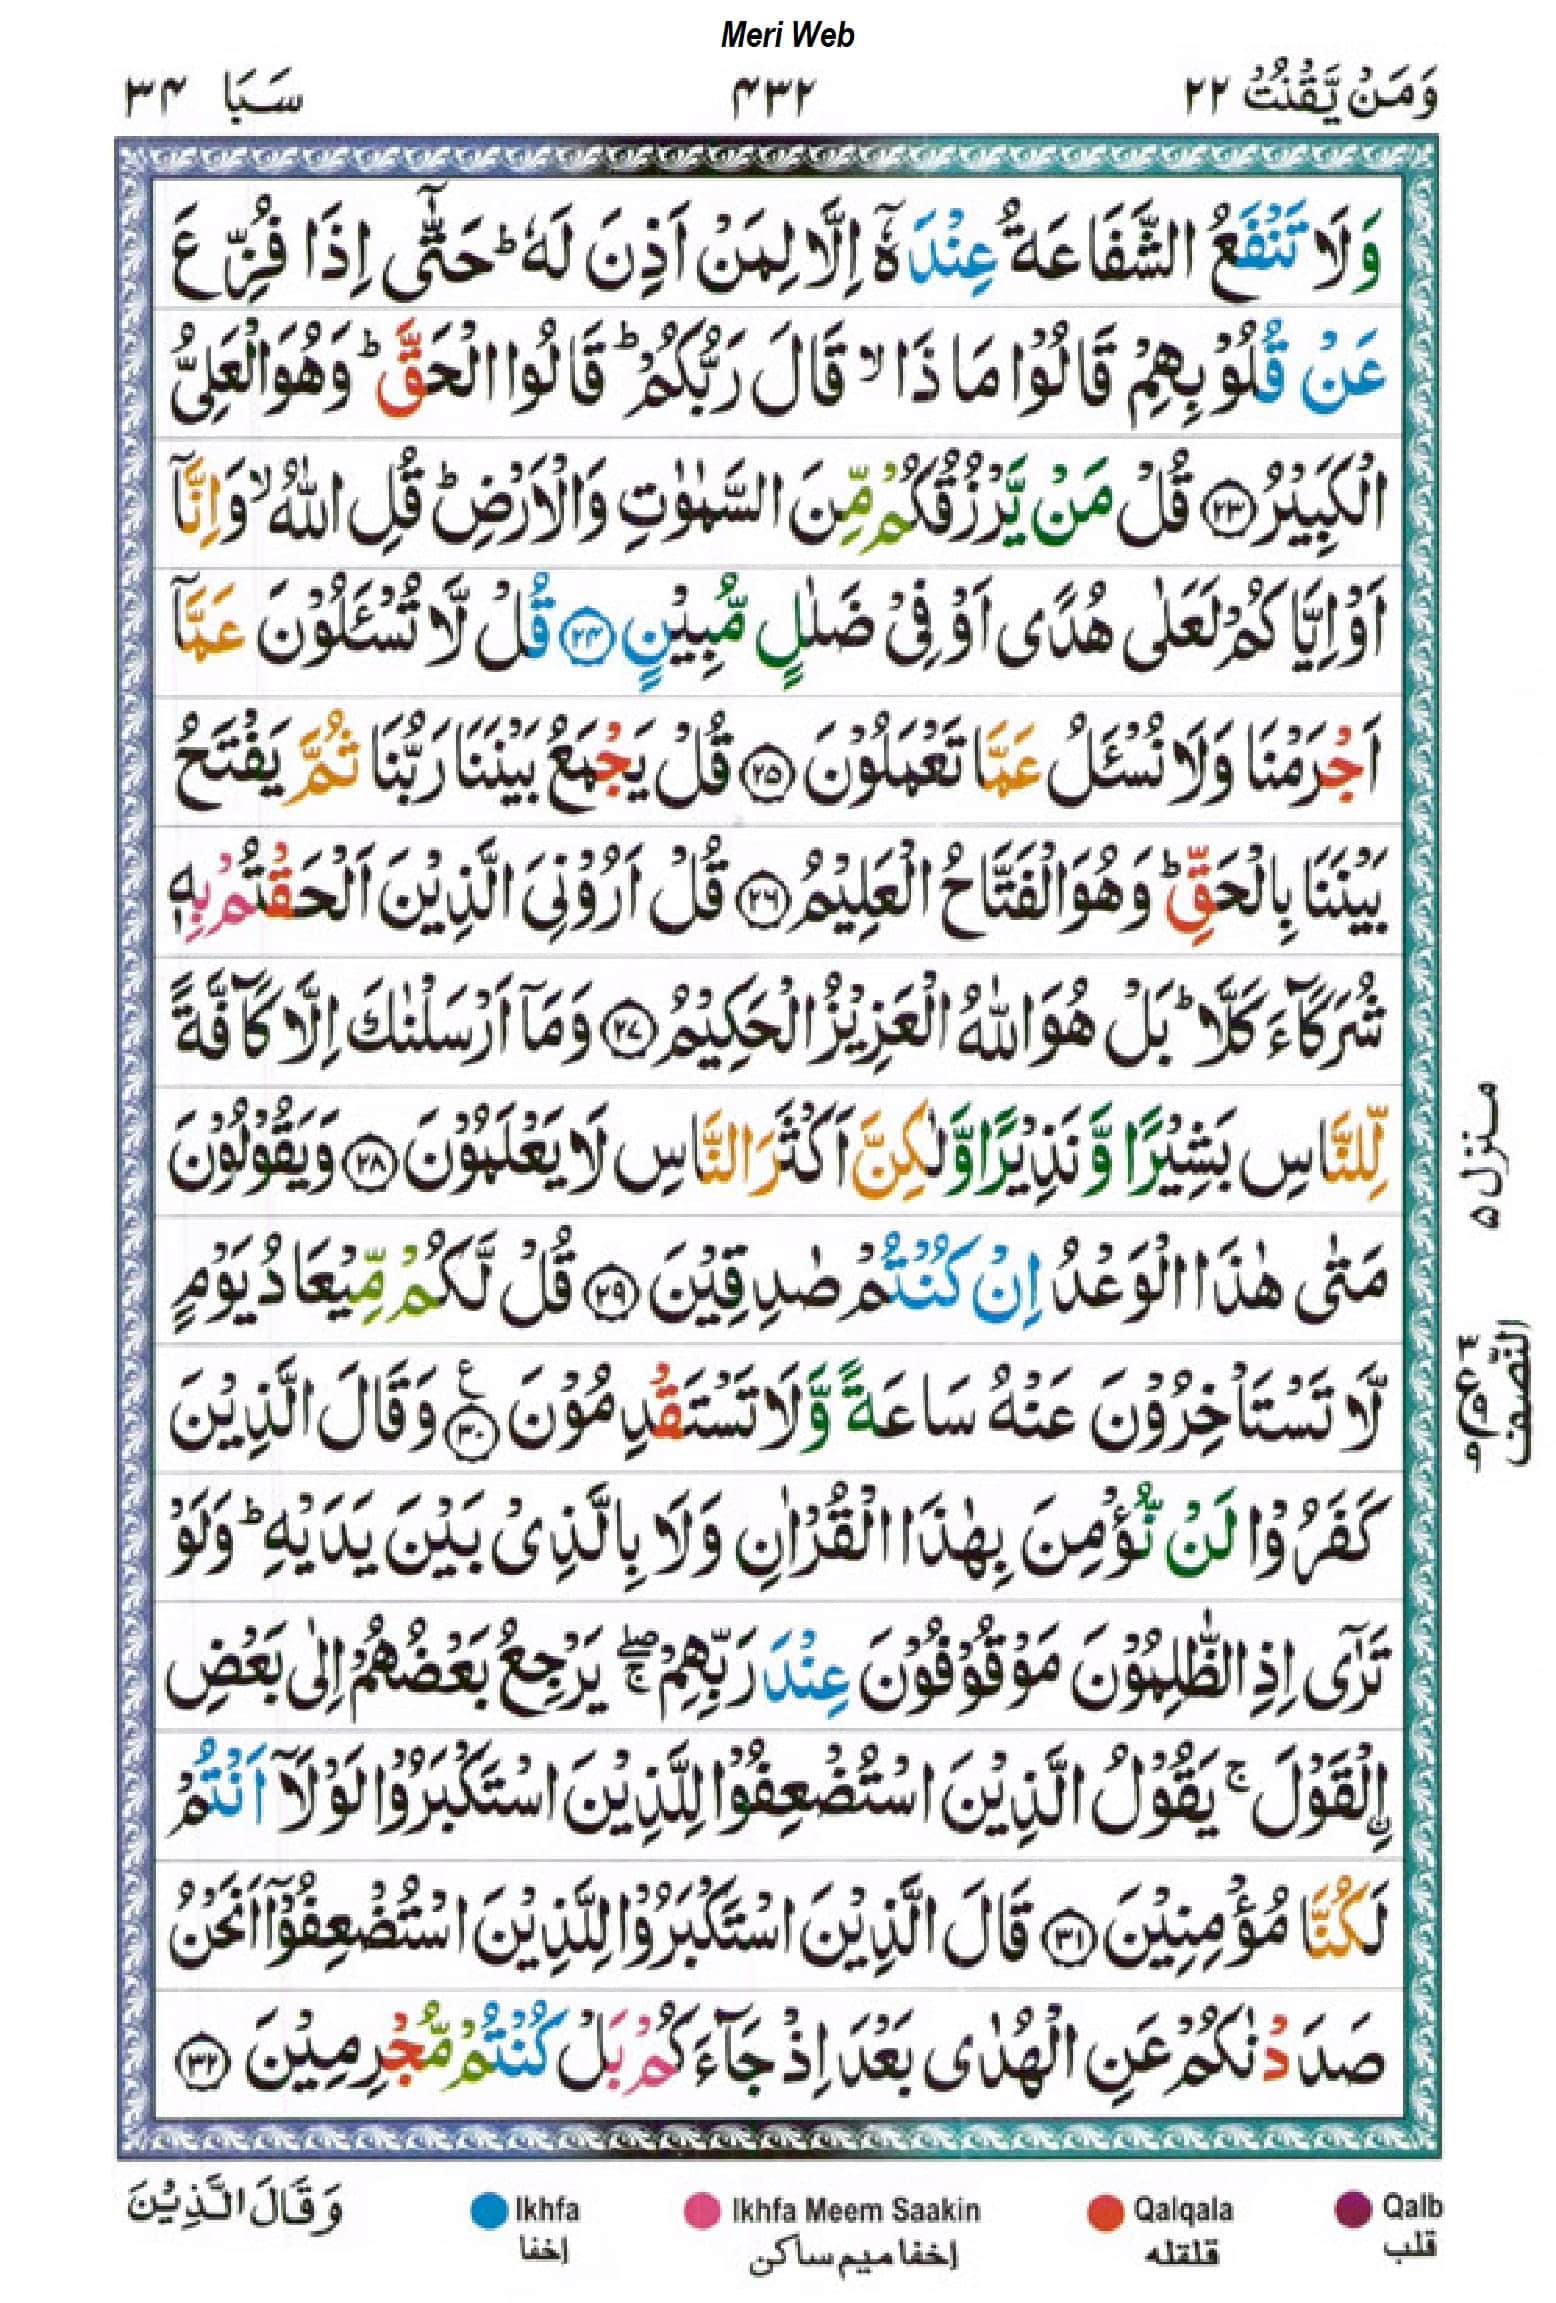 Meri Web
وَمَنْ يَّقْنُتْ ٢٢
٤٣٢
سَبَا ٣٤
وَلَا تَنْفَعُ الشَّفَاعَةُ عِنْدَهٗۤ اِلَّا لِمَنْ اَذِنَ لَهٗؕ حَتّٰۤى اِذَا فُزِّعَ
عَنْ قُلُوْبِهِمْ قَالُوْا مَاذَا ۙ قَالَ رَبُّكُمْؕ قَالُوا الْحَقَّؕ وَهُوَ الْعَلِىُّ
الْكَبِيْرُ ﴿٢٣﴾ قُلْ مَنْ يَّرْزُقُكُمْ مِّنَ السَّمٰوٰتِ وَالْاَرْضِؕ قُلِ اللّٰهُ ۙ وَاِنَّاۤ
اَوْ اِيَّاكُمْ لَعَلٰى هُدًى اَوْ فِىْ ضَلٰلٍ مُّبِيْنٍ ﴿٢٤﴾ قُلْ لَّا تُسْـَٔلُوْنَ عَمَّاۤ
اَجْرَمْنَا وَلَا نُسْـَٔلُ عَمَّا تَعْمَلُوْنَ ﴿٢٥﴾ قُلْ يَجْمَعُ بَيْنَنَا رَبُّنَا ثُمَّ يَفْتَحُ
بَيْنَنَا بِالْحَقِّؕ وَهُوَ الْفَتَّاحُ الْعَلِيْمُ ﴿٢٦﴾ قُلْ اَرُوْنِىَ الَّذِيْنَ اَلْحَقْتُمْ بِهٖ
شُرَكَآءَ كَلَّاؕ بَلْ هُوَ اللّٰهُ الْعَزِيْزُ الْحَكِيْمُ ﴿٢٧﴾ وَمَاۤ اَرْسَلْنٰكَ اِلَّا كَآفَّةً
لِّلنَّاسِ بَشِيْرًا وَّنَذِيْرًا وَّلٰكِنَّ اَكْثَرَ النَّاسِ لَا يَعْلَمُوْنَ ﴿٢٨﴾ وَيَقُوْلُوْنَ
مَتٰى هٰذَا الْوَعْدُ اِنْ كُنْتُمْ صٰدِقِيْنَ ﴿٢٩﴾ قُلْ لَّكُمْ مِّيْعَادُ يَوْمٍ
لَّا تَسْتَاْخِرُوْنَ عَنْهُ سَاعَةً وَّلَا تَسْتَقْدِمُوْنَ ﴿٣٠﴾ ع وَقَالَ الَّذِيْنَ
كَفَرُوْا لَنْ نُّؤْمِنَ بِهٰذَا الْقُرْاٰنِ وَلَا بِالَّذِىْ بَيْنَ يَدَيْهِؕ وَلَوْ
تَرٰٓى اِذِ الظّٰلِمُوْنَ مَوْقُوْفُوْنَ عِنْدَ رَبِّهِمْ ۖۚ يَرْجِعُ بَعْضُهُمْ اِلٰى بَعْضِ
ۨالْقَوْلَ ۚ يَقُوْلُ الَّذِيْنَ اسْتُضْعِفُوْا لِلَّذِيْنَ اسْتَكْبَرُوْا لَوْلَاۤ اَنْتُمْ
لَكُنَّا مُؤْمِنِيْنَ ﴿٣١﴾ قَالَ الَّذِيْنَ اسْتَكْبَرُوْا لِلَّذِيْنَ اسْتُضْعِفُوْۤا اَنَحْنُ
صَدَدْنٰكُمْ عَنِ الْهُدٰى بَعْدَ اِذْ جَآءَكُمْ بَلْ كُنْتُمْ مُّجْرِمِيْنَ ﴿٣٢﴾
منزل ٥
النّصف
وَقَالَ الَّذِيْنَ
Ikhfa
اخفا
Ikhfa Meem Saakin
اخفا میم ساکن
Qalqala
قلقله
Qalb
قلب